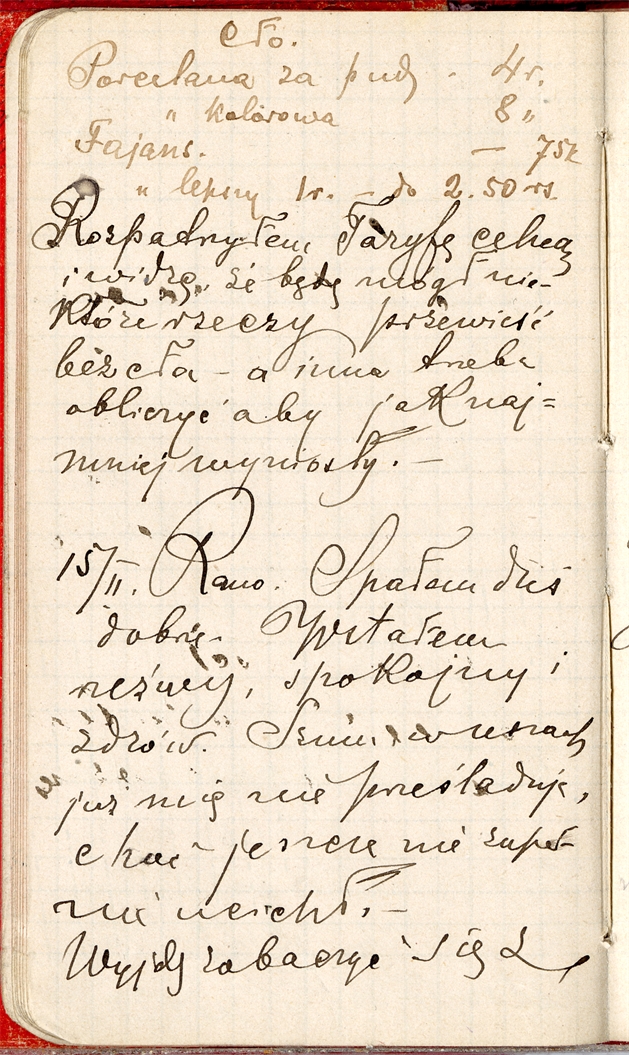 Cło.
Porcelana za pud - 4 r.
" kolorowa 8 "
Fajans. — 75 k
" lepszy 1 r. - do 2.50 rs.
Rozpatrzyłem Taryfę celną
i widzę, że będę mógł nie-
które rzeczy przewieść
bez cła - a inne trzeba
obliczyć aby jaknaj=
mniej wyniosły. —
15/II. Rano. Spałem dziś
dobrze. Wstałem
rzeźwy, spokojny i
zdrów. Szum w uszach
już mię nie prześladuje,
choć jeszcze nie zupeł-
nie ucichł. —
Wyjdę zobaczyć się z